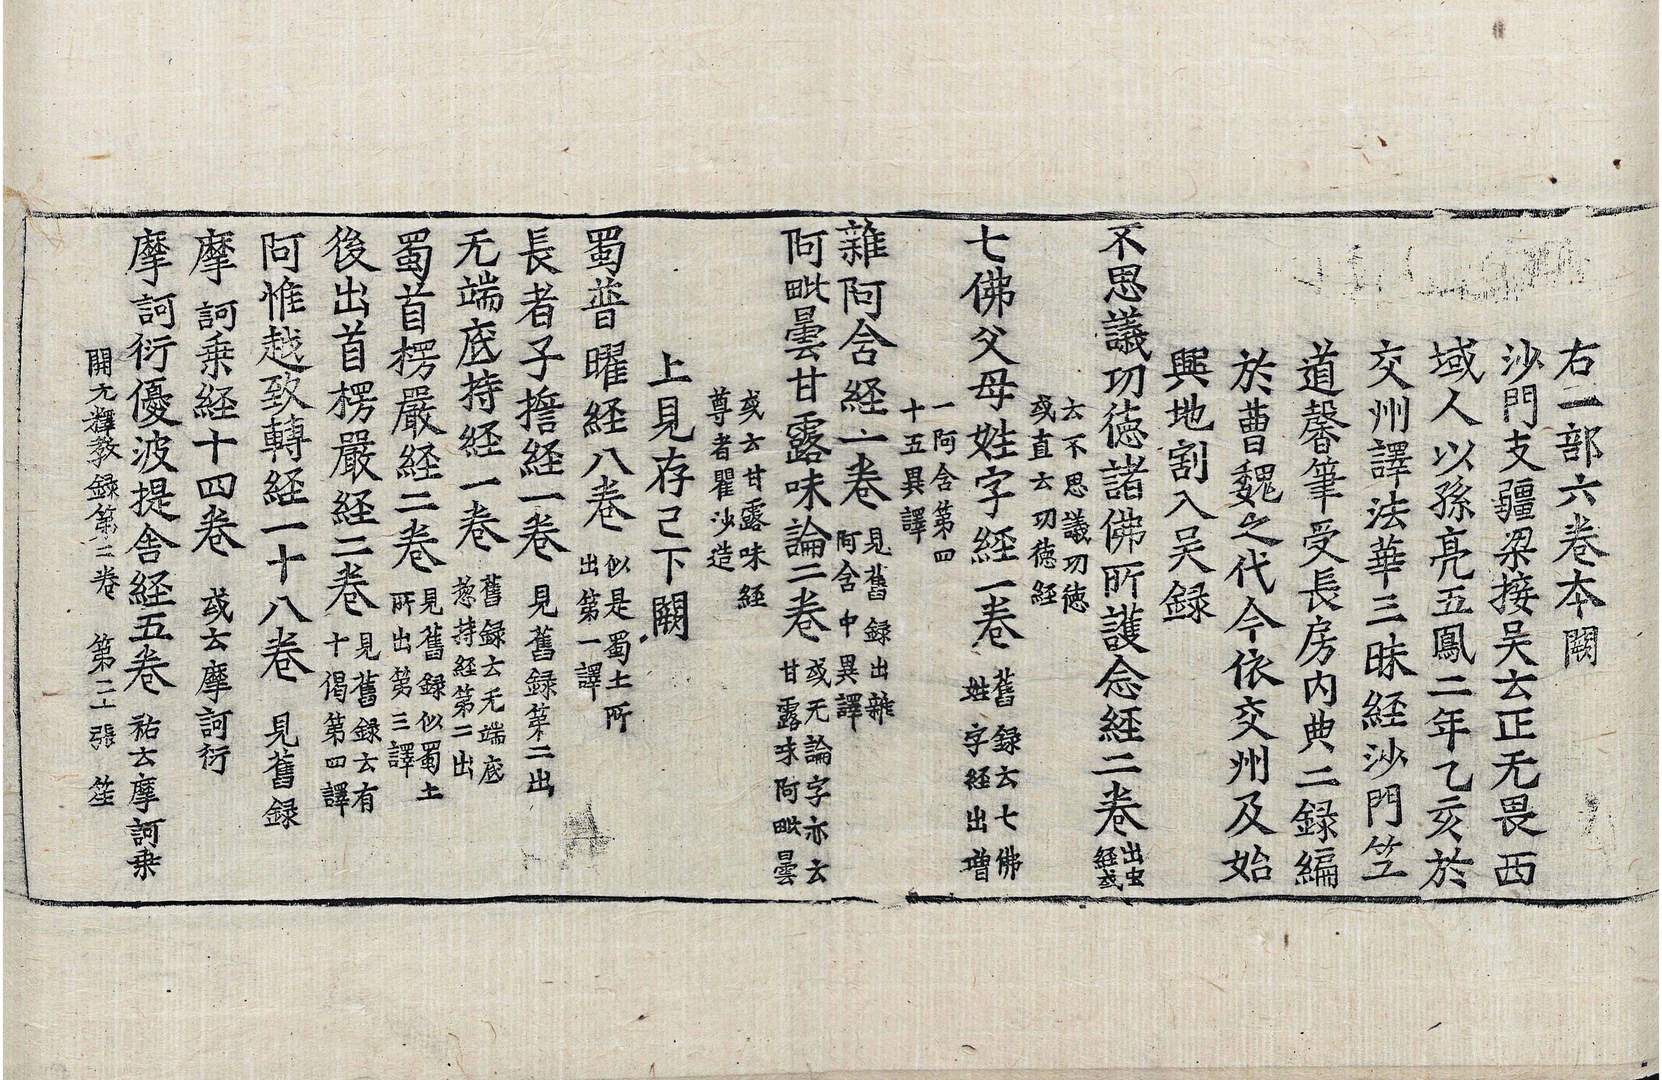 右二部六卷本闕
沙門支疆梁接吳云正无畏西
域人以孫亮五鳳二年乙亥於
交州譯法華三昧經沙門竺
道馨筆受長房内典二録編
於曹魏之代今依交州及始
興地割入吴録
不思議功德諸佛所護念經二卷 出虫
經或
云不思議功德
或直云功徳經
七佛父母姓字經一卷 舊録云七佛
姓字經出增
一阿含第四
十五異譯
雜阿含経一卷 見舊録出雜
阿含中異譯
阿毗曇甘露味論二卷 或无論字亦云
甘露味阿毗曇
或云甘露味經
尊者瞿沙造
上見存已下闕
蜀普曜経八卷 似是蜀土所
出第一譯
長者子擔経一卷 見舊録第二出
无端底持経一卷 舊録云无端底
惣持経第二出
蜀首楞嚴経二卷 見舊録似蜀土
所出第三譯
後出首楞嚴経二卷 見舊録云有
十偈第四譯
阿惟越致轉経一十八卷 見舊録
摩訶乗経十四卷 或云摩訶衍
摩訶衍優波提舍経五卷 祐云摩訶乗
開元釋教録第二卷 第二十張 笙